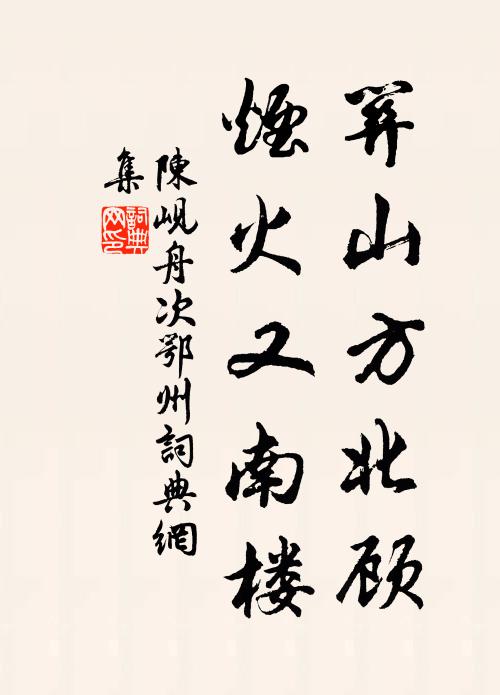 關山方北顾
煙火又南楼
陳峴舟次鄂州詞典網
集
詞典
网印